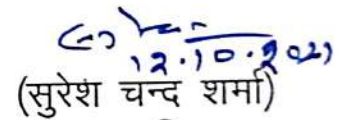 12.10.2021
(सुरेश चन्द शर्मा)